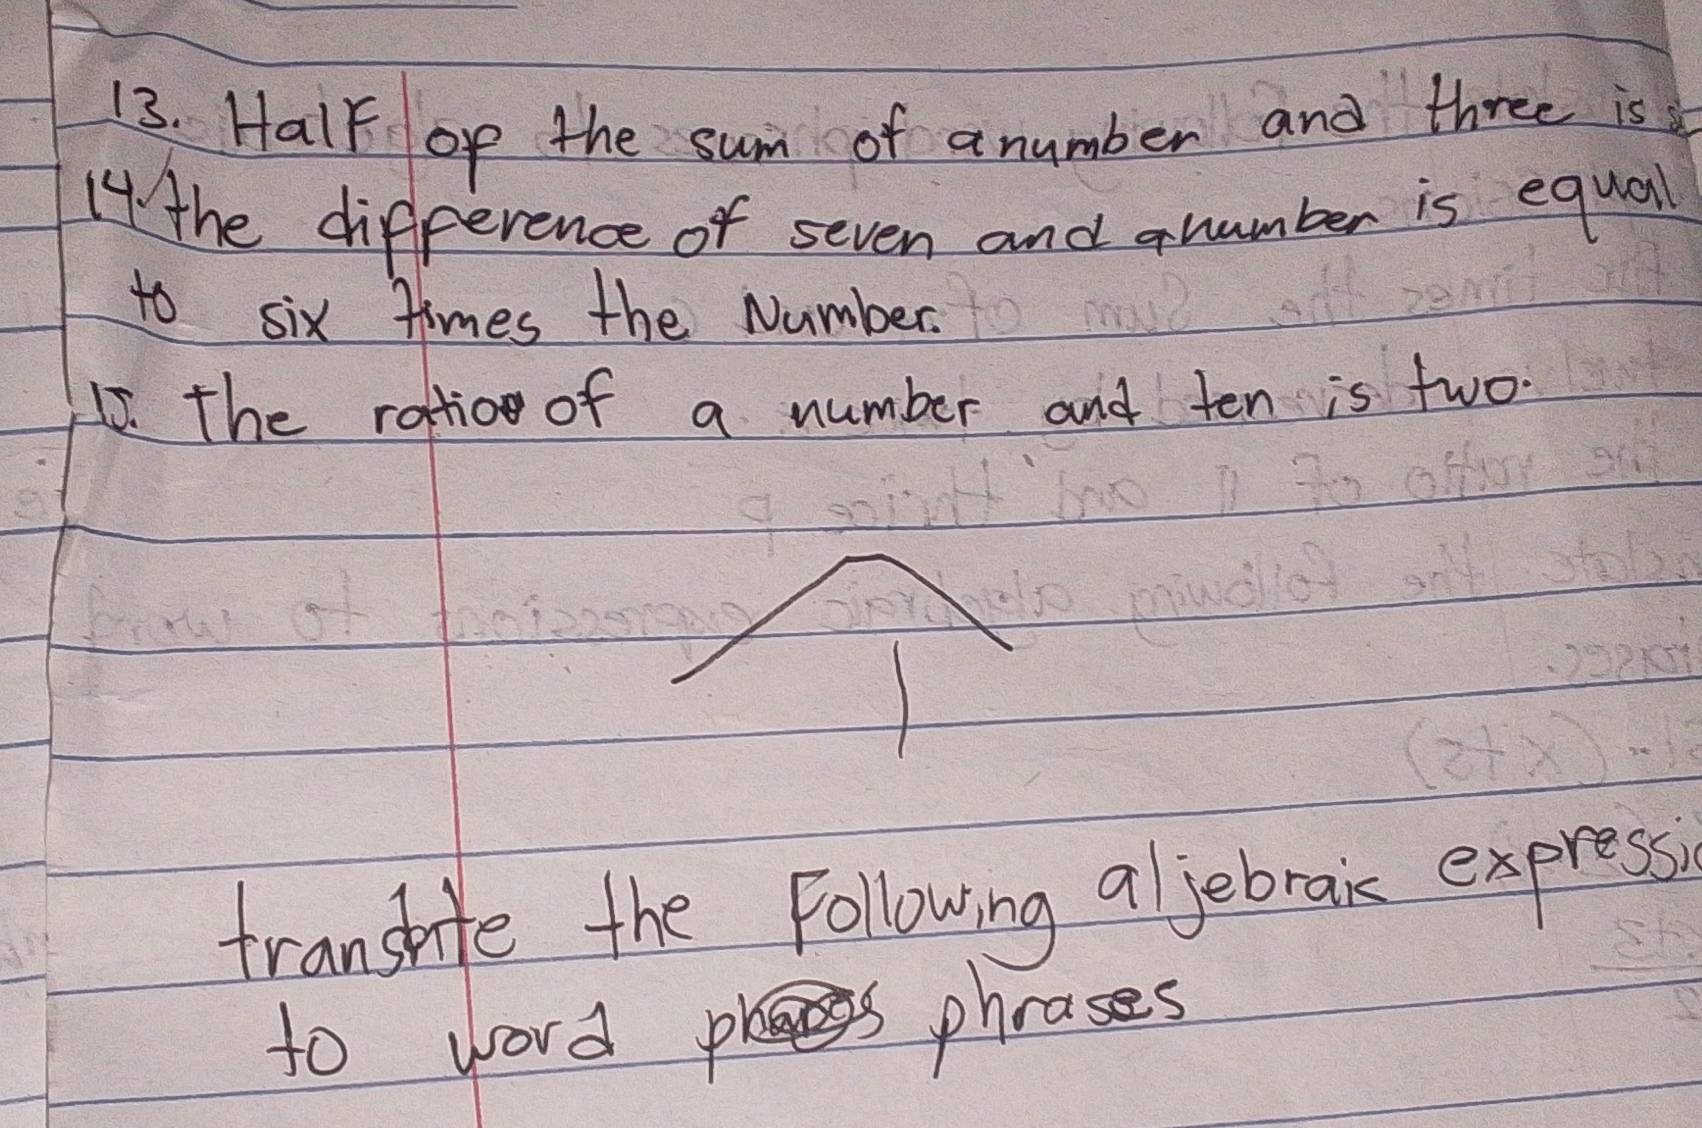 13. Half of the sum of a number and three is
14. the difference of seven and a number is equal
to six times the Number.
15. The ratio of a number and ten is two.
translate the Following aljebraic expressio
to word phrases